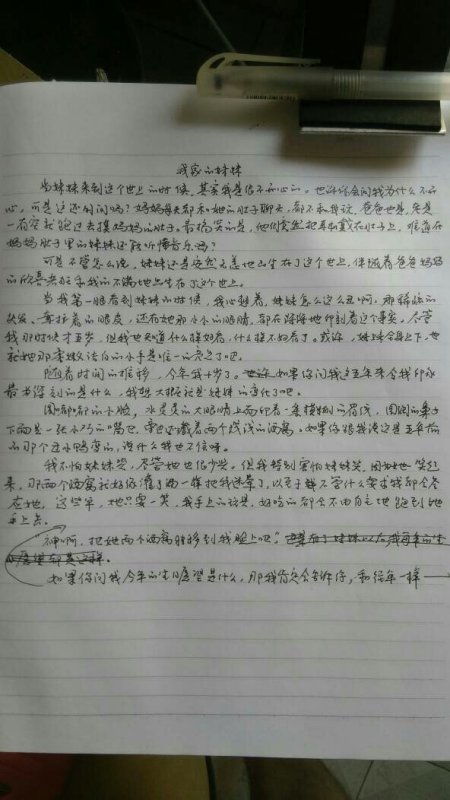 我家的妹妹
当妹妹来到这个世上的时候，其实我是很不开心的。也许你会问我为什么不开
心，可是这还用问吗？妈妈每天都和她的肚子聊天，都不和我说，爸爸也是，老是
一有空就跑过去摸妈妈的肚子。最搞笑的是，他们竟然把耳机戴在肚子上，难道在
妈妈肚子里的妹妹还能听懂音乐吗？
可是不管怎么说，妹妹还是安然无恙地出生在了这个世上，伴随着爸爸妈妈
的欣喜和我的不满地出生在了这个世上。
当我第一眼看到妹妹的时候，我心想着，妹妹怎么这么丑啊，那稀疏的
头发、耷拉着的眼皮，还有她那小小的眼睛，都在深深地印刻着这个事实。尽管
我那时候才五岁，但我也知道什么样好看，什么样不好看了。或许，妹妹全身上下，也
就她那李嫩洁白的小手是唯一的亮点了吧。
随着时间的推移，今年我十岁了。如果你问我这五年来令我印象
最为深刻的是什么，我想大概就是妹妹的变化了吧。
圆嘟嘟的小脸，水灵灵的大眼睛上面印着一条模糊的眉线，圆圆的鼻子
下面是一张小巧的嘴巴，旁边还藏着两个浅浅的酒窝。如果你跟我说这是五年前
的那个丑小鸭变的，说什么我也不信呀。
我不怕妹妹哭，尽管她也很少哭。但我特别害怕妹妹笑，因为她一笑起
来，那两个酒窝就好像灌了酒一样把我迷晕了，以至于无论什么要求我都会答
应她，这些年，她只要一笑，我手上的玩具，好吃的都会不由自主地跑到她
手上去。
神啊，把她两个酒窝转移到我脸上吧！
如果你问我今年的生日愿望是什么，那我肯定会告诉你，和往年一样——